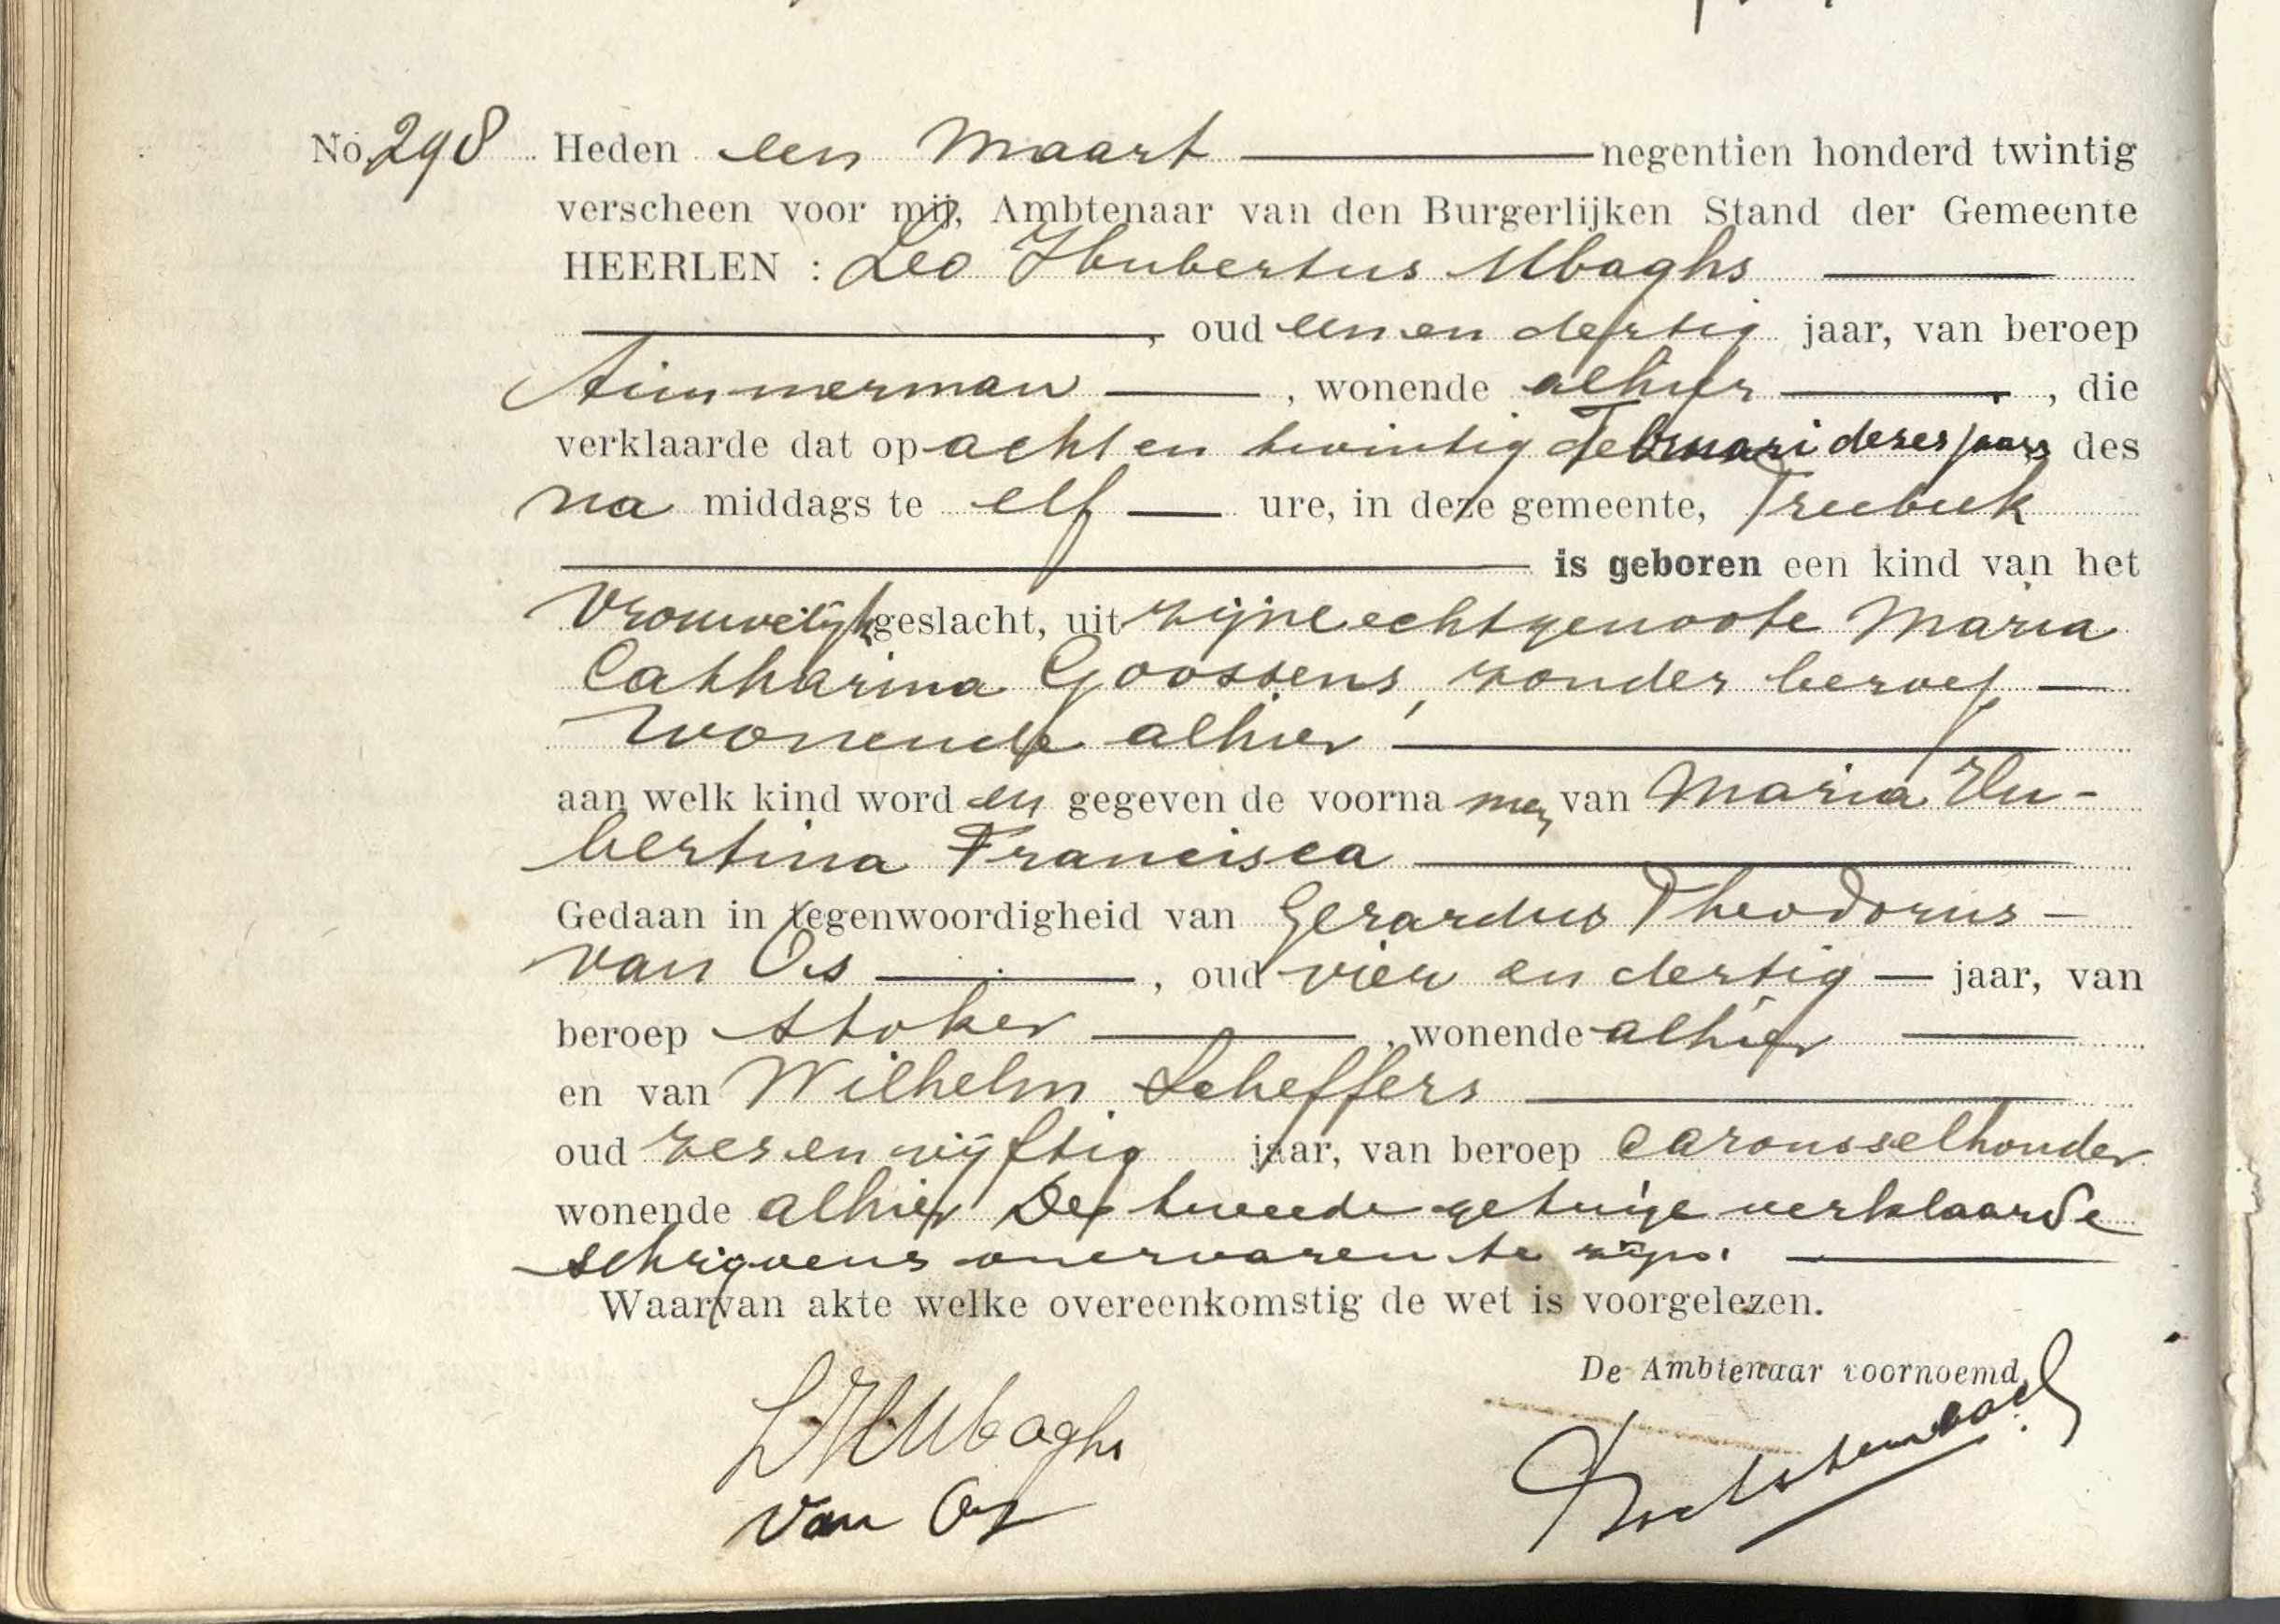 No. 298 Heden een Maart negentien honderd twintig
verscheen voor mij, Ambtenaar van den Burgerlijken Stand der Gemeente
HEERLEN : Leo Hubertus Ubaghs
, oud een en dertig jaar, van beroep
timmerman , wonende alhier , die
verklaarde dat op acht en twintig Februari dezes jaars des
na middags te elf ure, in deze gemeente, Treebeek
is geboren een kind van het
vrouwelijk geslacht, uit zijne echtgenoote Maria
Catharina Goossens, zonder beroep
wonende alhier
aan welk kind word en gegeven de voorna men van Maria Hu-
bertina Francisca
Gedaan in tegenwoordigheid van Gerardus Theodorus
van Os , oud vier en dertig jaar, van
beroep stoker , wonende alhier
en van Wilhelm Scheffers
oud zes en vijftig jaar, van beroep carousselhouder
wonende alhier De tweede getuige verklaarde
schrijvens onervaren te zijn.
Waarvan akte welke overeenkomstig de wet is voorgelezen.
De Ambtenaar voornoemd,
LHUbaghs
van Os